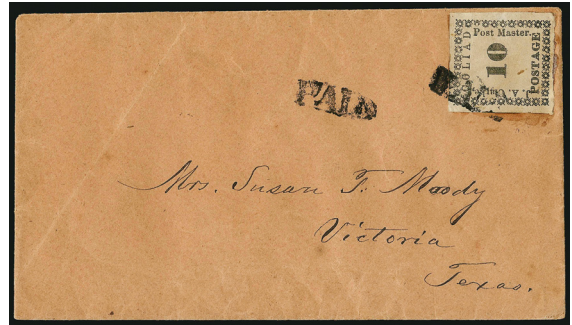 Post Master.
GOLIAD
10
POSTAGE
J. A. Clarke
PAID
Mrs. Susan F. Moody
Victoria
Texas.